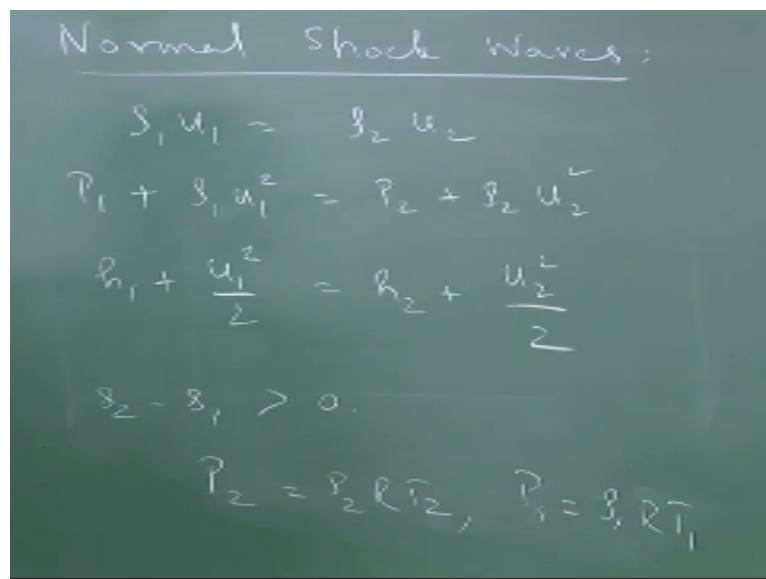 Normal Shock Waves:
ρ₁ u₁ = ρ₂ u₂
P₁ + ρ₁ u₁² = P₂ + ρ₂ u₂²
h₁ + u₁²/2 = h₂ + u₂²/2
s₂ - s₁ > 0.
P₂ = ρ₂RT₂, P₁ = ρ₁RT₁